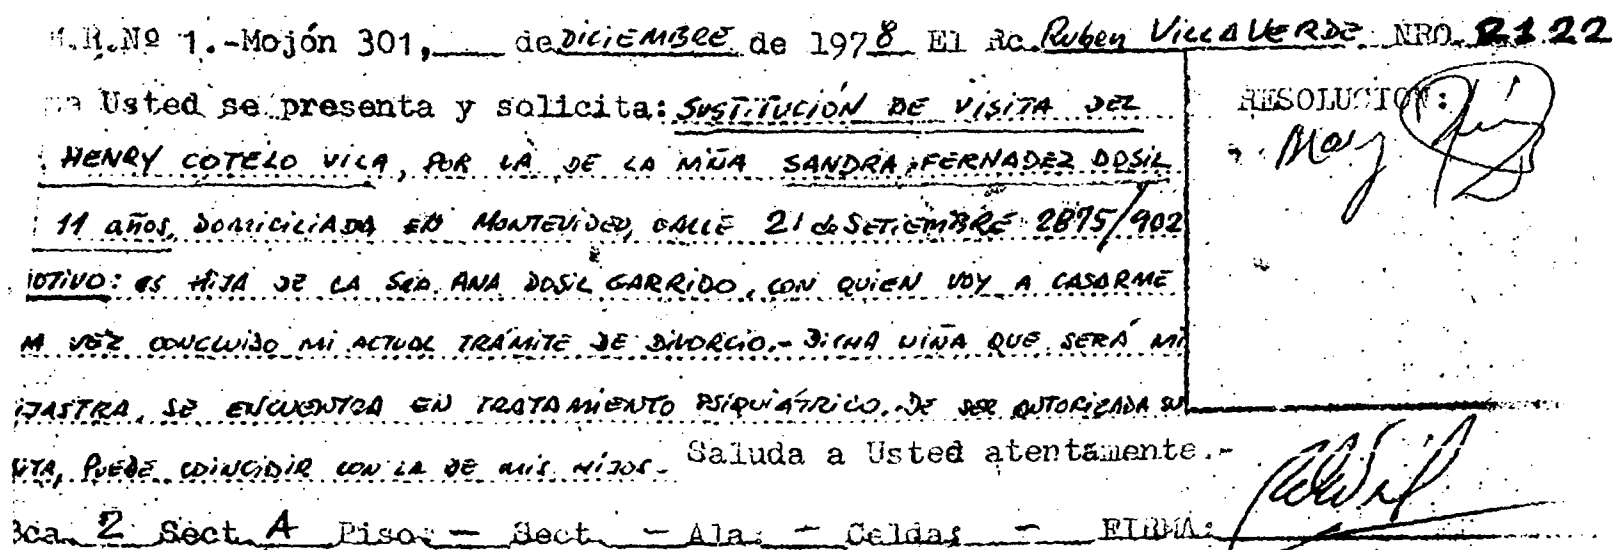 M.R.Nº 1.-Mojón 301, de DICIEMBRE de 1978 El Rc. Ruben VILLAVERDE NRO 2122
a Usted se presenta y solicita: SUSTITUCIÓN DE VISITA DEL
RESOLUCION:
HENRY COTELO VILA, POR LA DE LA NIÑA SANDRA FERNADEZ DOSIL
11 años, DOMICILIADA EN MONTEVIDEO, CALLE 21 de SETIEMBRE 2875/902
MOTIVO: ES HIJA DE LA SRA. ANA DOSIL GARRIDO, CON QUIEN VOY A CASARME
A VEZ CONCLUIDO MI ACTUAL TRÁMITE DE DIVORCIO.- DICHA NIÑA QUE SERÁ MI
IJASTRA, SE ENCUENTRA EN TRATAMIENTO PSIQUIÁTRICO. DE SER AUTORIZADA SU
SITA, PUEDE COINCIDIR CON LA DE MIS HIJOS.- Saluda a Usted atentamente.-
Bca 2 Sect. A Piso: - Sect. - Ala: - Celda: - FIRMA: